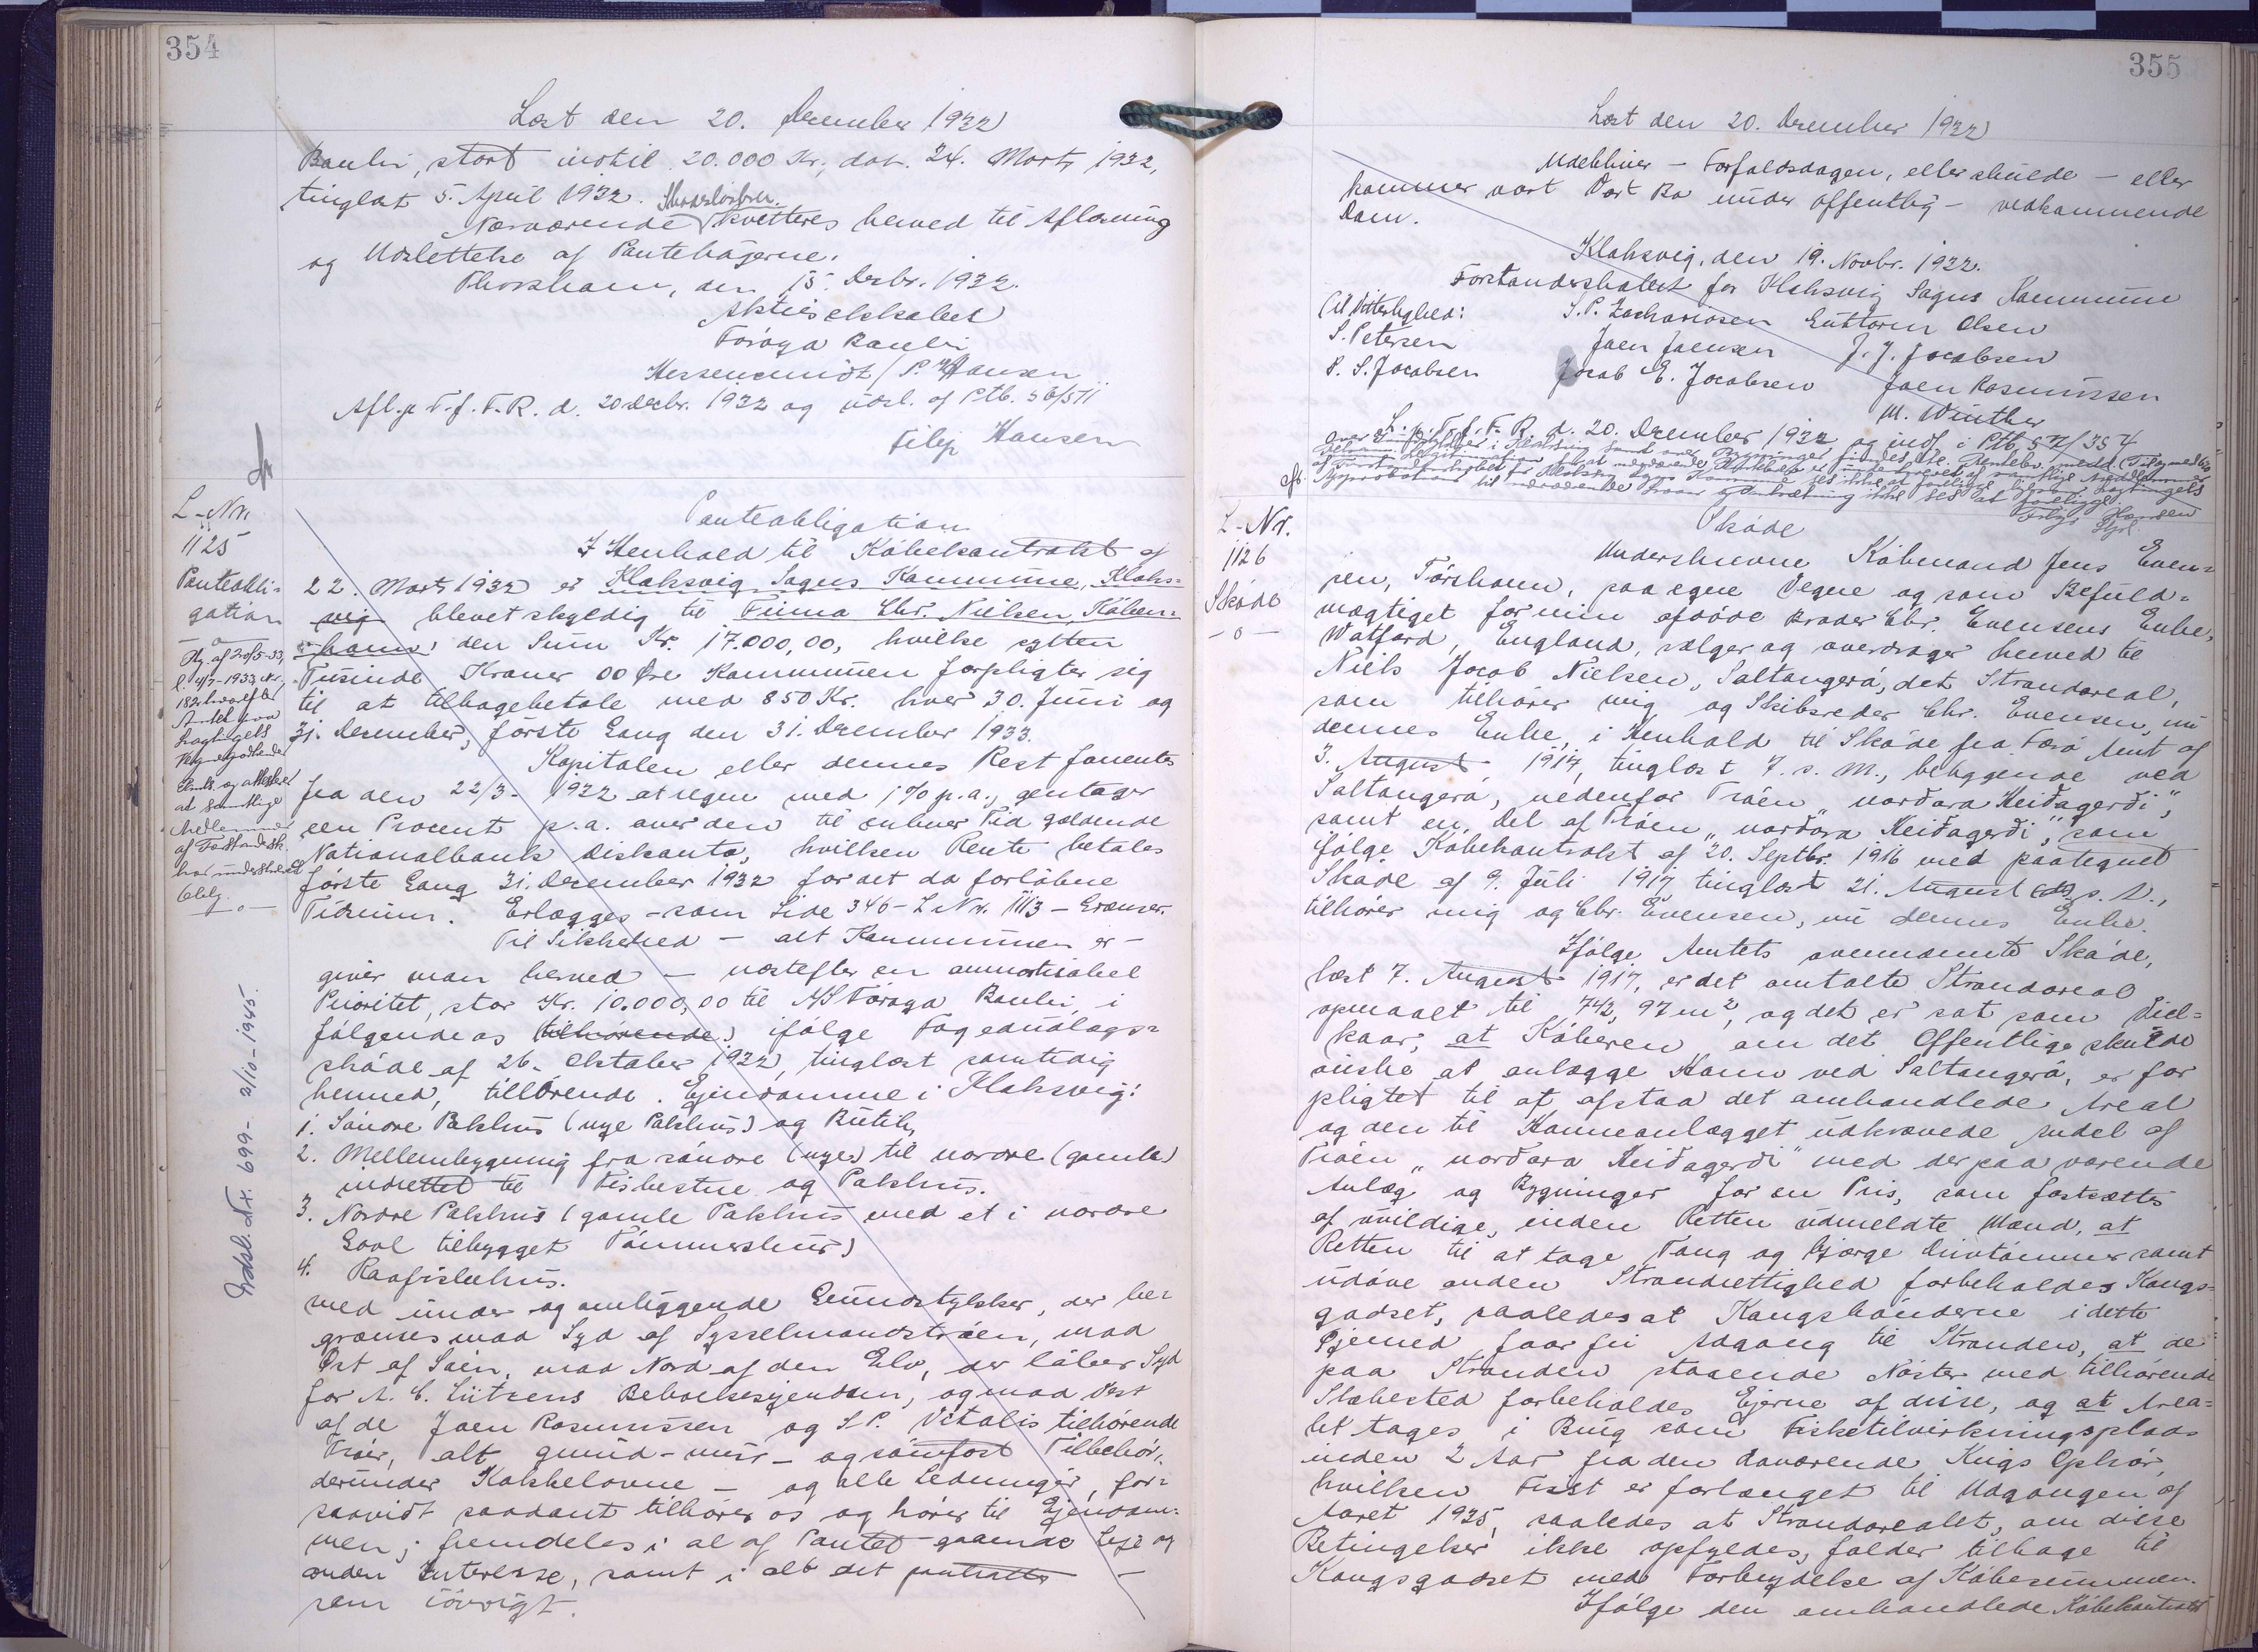 354
Læst den 20. December 1932
Banki, stort indtil 20.000 Kr., dat. 24. Marts 1932,
tinglæst 5. April 1932.
Skadesløsbrev.
Nærværende kvitteres herved til Aflæsning
og Udslettelse af Pantebøgerne.
Thorshavn, den 15. Decbr. 1932.
Aktieselskabet
Føroya Banki
P. Hansen
Afl. p. F. f. F. R. d. 20 Decbr. 1932 og udsl. af Ptb.
Filip Hansen
L-Nr.
1125
Panteobli-
gation
Panteobligation
I Henhold til Købekontrakt af
22. Marts 1932 er Klaksvig Sogns Kommune, Klaks=
vig blevet skyldig til Firma Chr. Nielsen, Køben=
havn, den Sum Kr. 17.000,00, hvilke sytten
Tusinde Kroner 00 Øre Kommunen forpligter sig
til at tilbagebetale med 850 Kr. hver 30. Juni og
31. December, første Gang den 31. December 1933.
Kapitalen eller dennes Rest forrentes
fra den 22/3- 1932 at regne med 1% p.a., gentager
een Procent p.a. over den til enhver Tid gældende
Nationalbank Diskonto, hvilken Rente betales
første Gang 31. December 1932 for det da forløbne
Tidsrum. Erlægges - som Side 346 - L Nr. 1113 - Grænser.
Til Sikkerhed - alt Kommunen er -
giver man herved - næstefter en amortisabel
Prioritet, stor Kr. 10.000,00 til A/S Føroya Banki, i
følgende os (tilhørende) ifølge Fogedudlægs=
skøde af 26. Oktober 1932, tinglæst samtidig
hermed, tilhørende Ejendomme i Klaksvig:
1. Søndre Pakhus (nye Pakhus) og Butik,
2. Mellembygning fra søndre (nye) til nordre (gamle)
indrettet til og Pakhus.
3. Nordre Pakhus (gamle Pakhus med et i nordre
Gavl tilbygget Tømmerskur)
4. Raafiskehus.
med under og omliggende Grundstykker, der be=
grænses mod Syd af Sysselmandstrøen, mod
Øst af Søen, mod Nord af den Elv, der løber Syd
for A. C. Lützens Beboelsesejendom, og mod Vest
af de Joen Rasmussen og S. P. Vitalis tilhørende
Trøer, alt grund- mur- og sømfast Tilbehør,
derunder Kakkelovne - og alle Ledninger, for=
saavidt saadant tilhører os og hører til Ejendom=
men, fremdeles i al af Pantet gaaende Leje og
anden Interesse, samt i alt det
som iøvrigt.
Rg. af 20/5-33,
l. 4/7-1933 Nr.
182 hvorefter
Amtet paa
Lagtingets
Vegne godkender
Laanet og attesterer
at samtlige
Medlemmer
af Forstandersk.
har underskrevet
Oblig.
Udsl. Nr. 699- 2/10-1945.
355
Læst den 20. December 1932
udebliver - Forfaldsdagen, eller skulde - eller
kommer vort Vort Bo under offentlig - vedkommende
Dom.
Klaksvig, den 19. Novbr. 1932.
Forstanderskabet for Klaksvig Sogns Kommune
Til Vitterlighed: S. P. Zachariasen Guttorm Olsen
S. Petersen Joen Joensen J. J. Jacobsen
P. S. Jacobsen Jacob E. Jacobsen Joen Rasmussen
M. Winther
L. p. F. f. F. R. d. 20. December 1932 og indf. i Ptb. S n/354
Filip Hansen
L-Nr.
1126
Skøde
-o-
Skøde
Underskrevne Købmand Jens Even=
sen, Tórshavn, paa egne Vegne og som Befuld=
mægtiget for min afdøde Broder Chr. Evensens Enke,
Watford, England, sælger og overdrager herved til
Niels Jacob Nielsen, Saltangerá, det Strandareal,
som tilhører mig og Skibsreder Chr. Evensen, nu
dennes Enke, i Henhold til Skøde fra Færø Amt af
3. August 1917, tinglæst 7. s. M., beliggende ved
Saltangerá, nedenfor Trøen "nordara Heiðagerði",
samt en Del af Trøen "nordara Heiðagerði", som
ifølge Købekontrakt af 20. Septbr. 1916 med paategnet
Skøde af 9. Juli 1917 tinglæst 21. August s. A.,
tilhører mig og Chr. Evensen, nu dennes Enke.
Ifølge Amtets ovennævnte Skøde,
læst 7. August 1917, er det omtalte Strandareal
opmaalt til 742,97 m², og det er sat som Vil=
kaar, at Køberen, om det Offentlige skulde
ønske at anlægge Havn ved Saltangerá, er for
pligtet til at afstaa det omhandlede Areal
og den til Havneanlægget udkrævede Andel af
Trøen "nordara Heiðagerði" med derpaa værende
Anlæg og Bygninger for en Pris, som fastsættes
af uvildige, inden Retten udmeldte Mænd, at
Retten til at tage Tang og bjærge Drivtømmer samt
udøve anden Strandrettighed forbeholdes Kongs=
godset, saaledes at Kongsbønderne i dette
Øjemed faar fri Adgang til Stranden, at de
paa Stranden staaende Nøster med tilhørende
Støbested forbeholdes Ejerne af disse, og at Area=
let tages i Brug som Fisketilvirkningsplads
inden 2 Aar fra den daværende Krigs Ophør,
hvilken Frist er forlænget til Udgangen af
Aaret 1935, saaledes at Strandarealet, om disse
Betingelser ikke opfyldes, falder tilbage til
Kongsgodset med Forbrydelse af Købesummen.
Ifølge den omhandlede Købekontrakt